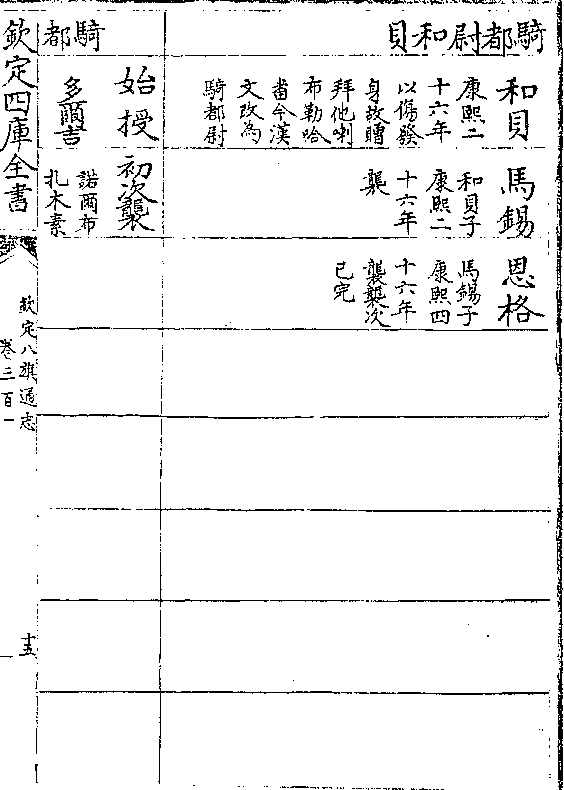 騎都尉和貝
和貝
康熙二
十六年
以傷發
身故贈
拜他喇
布勒哈
畨今漢
文改為
騎都尉
馬錫
和貝子
康熙二
十六年
襲
恩格
馬錫子
康熙四
十六年
襲襲次
已完
騎都
始授
多爾吉
初次襲
諾爾布
扎木素
欽定四庫全書
欽定八旗通志
卷三百一
十五